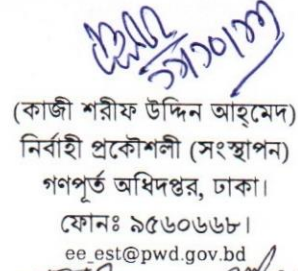 (কাজী শরীফ উদ্দিন আহ্‌মেদ)
নির্বাহী প্রকৌশলী (সংস্থাপন)
গণপূর্ত অধিদপ্তর, ঢাকা।
ফোনঃ ৯৫৬০৬৬৮।
ee_est@pwd.gov.bd